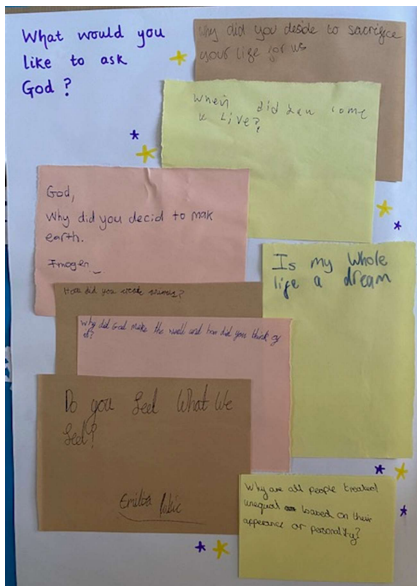 What would you
like to ask
God?
why did you decide to sacrifice
your life for us
When did you come
to Live?
God,
Why did you decid to mak
earth.
Imogen
Is my Whole
life a dream
How did you create
Why did God make the world and how did you think of
it?
Do you feel What We
feel?
Emilia
Why are all people treated
unequal based on their
appearance or personality?